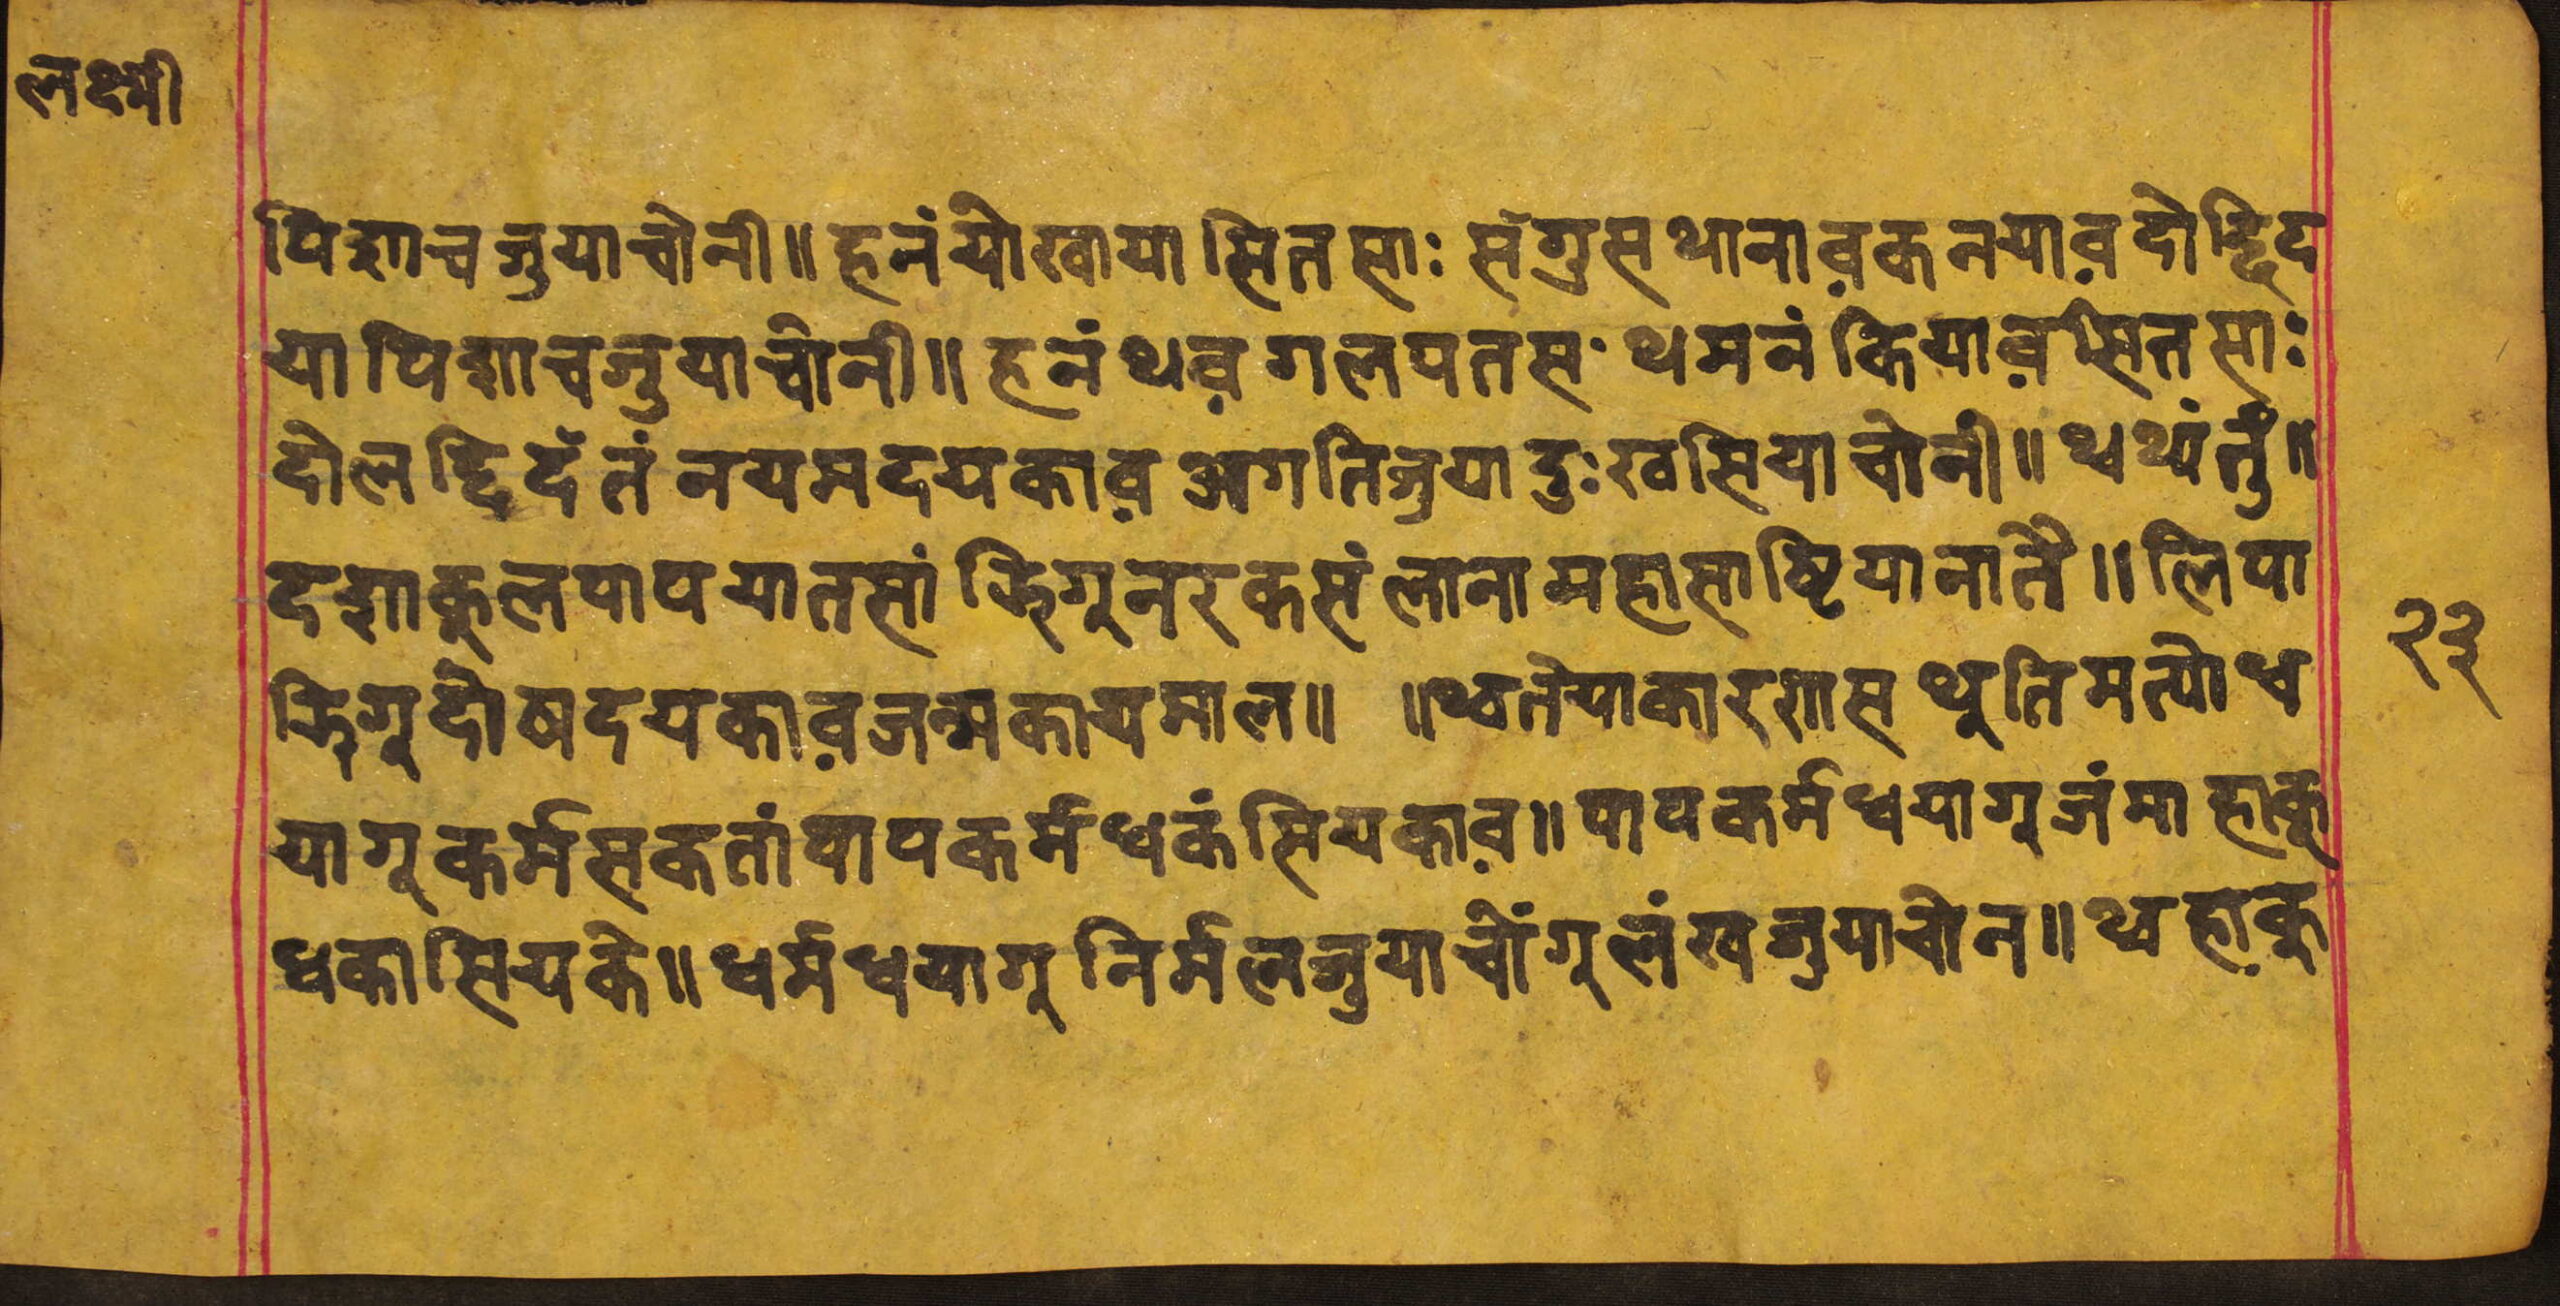 लक्ष्मी
पिशाच जुया चोनी॥ हनं योखाया सित साः सँगुस थानाव कनयाव दोछिद
या पिशाच जुया चोनी॥ हनं थव गलपतस थमनं कियाव सित साः
दोलछिदँ तं नयमदयकाव अगति जुया दुःख सिया चोनी॥ थथ्यं तुं॥
दशाकूल पाप यातसां झिगू नरकसं लाना महासास्ति याना तै॥ लिपा
झिगू दोष दयकाव जन्म काय माल॥ ॥ थ्वतेया कारणस थूति मत्योध
यागू कर्मस कतां पापकर्म धकं सियकाव॥ पापकर्म धयागू जंमा हाकू
धका सियके॥ धर्म धयागू निर्मल जुया चोंगू लंख जुया चोन॥ थ्व हाकु
२३